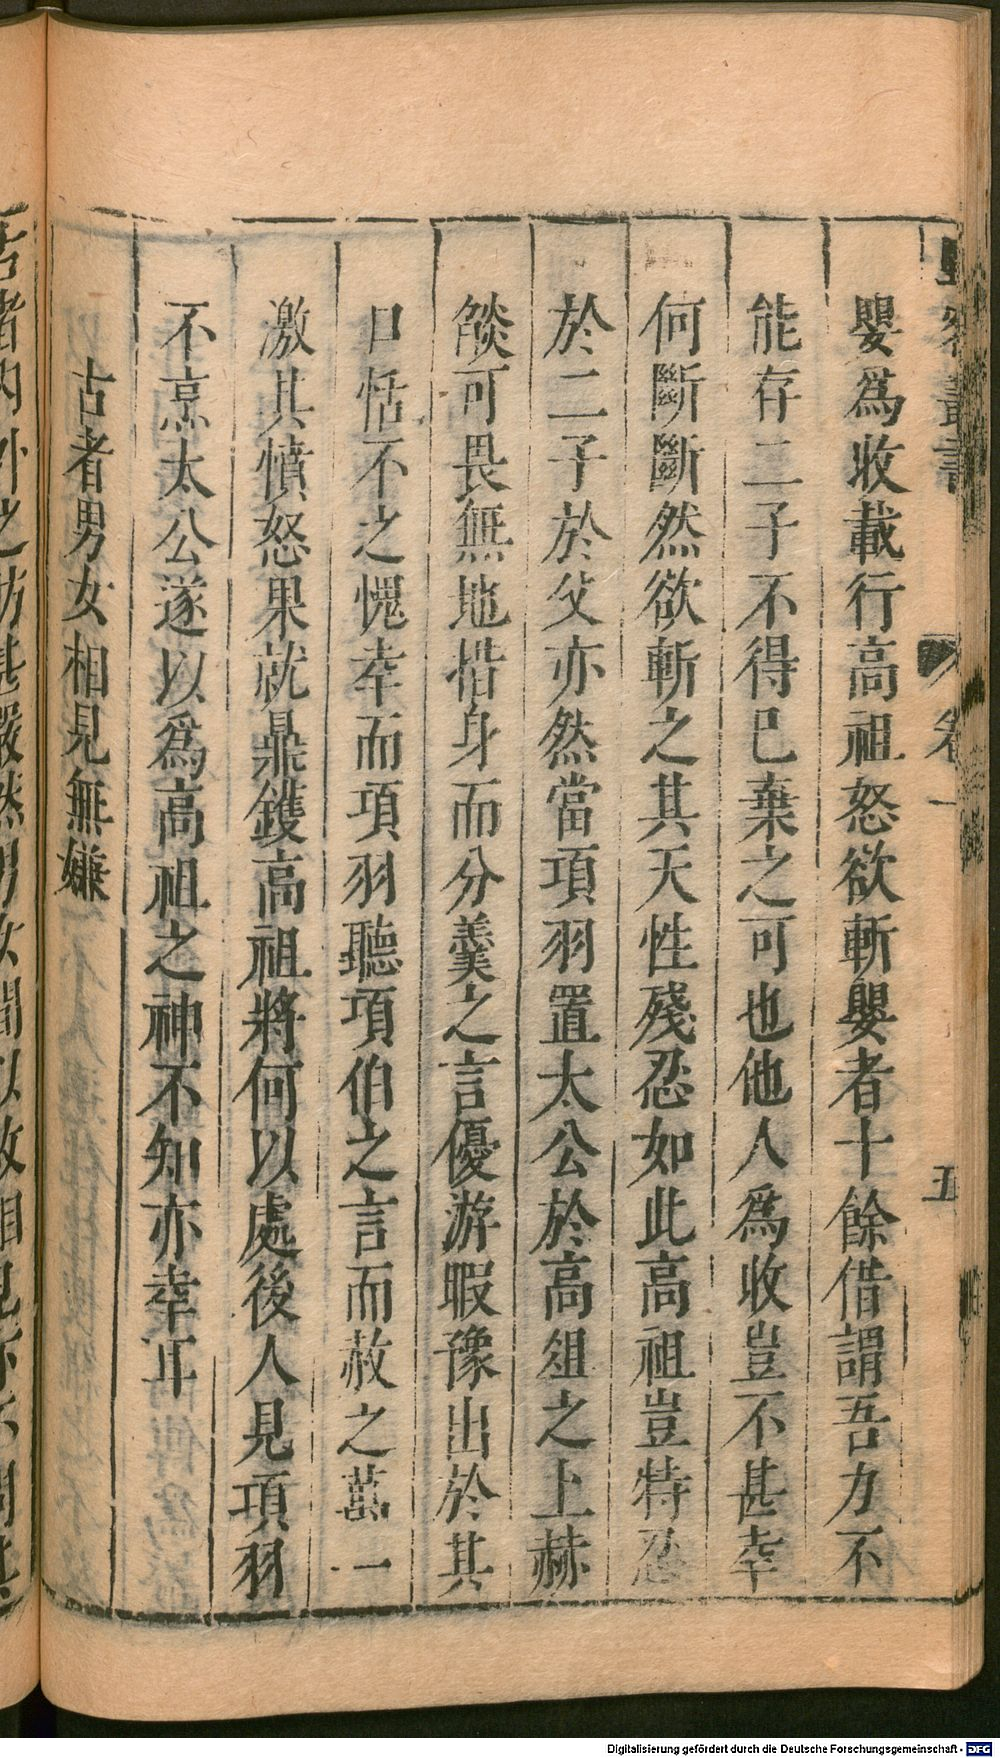 嬰爲收載行高祖怒欲斬嬰者十餘借謂吾力不
能存二子不得已棄之可也他人爲收豈不甚幸
何斷斷然欲斬之其天性殘忍如此高祖豈特忍
於二子於父亦然當項羽置太公於高俎之上赫
燄可畏無地措身而分羹之言優游暇豫出於其
口恬不之愧幸而項羽聽項伯之言而赦之萬一
激其憤怒果就鼎鑊高祖將何以處後人見項羽
不烹太公遂以爲高祖之神不知亦幸耳
古者男女相見無嫌
卷一
五
古者内外之防甚嚴然男女間以故相見亦不
Digitalisierung gefördert durch die Deutsche Forschungsgemeinschaft - DFG